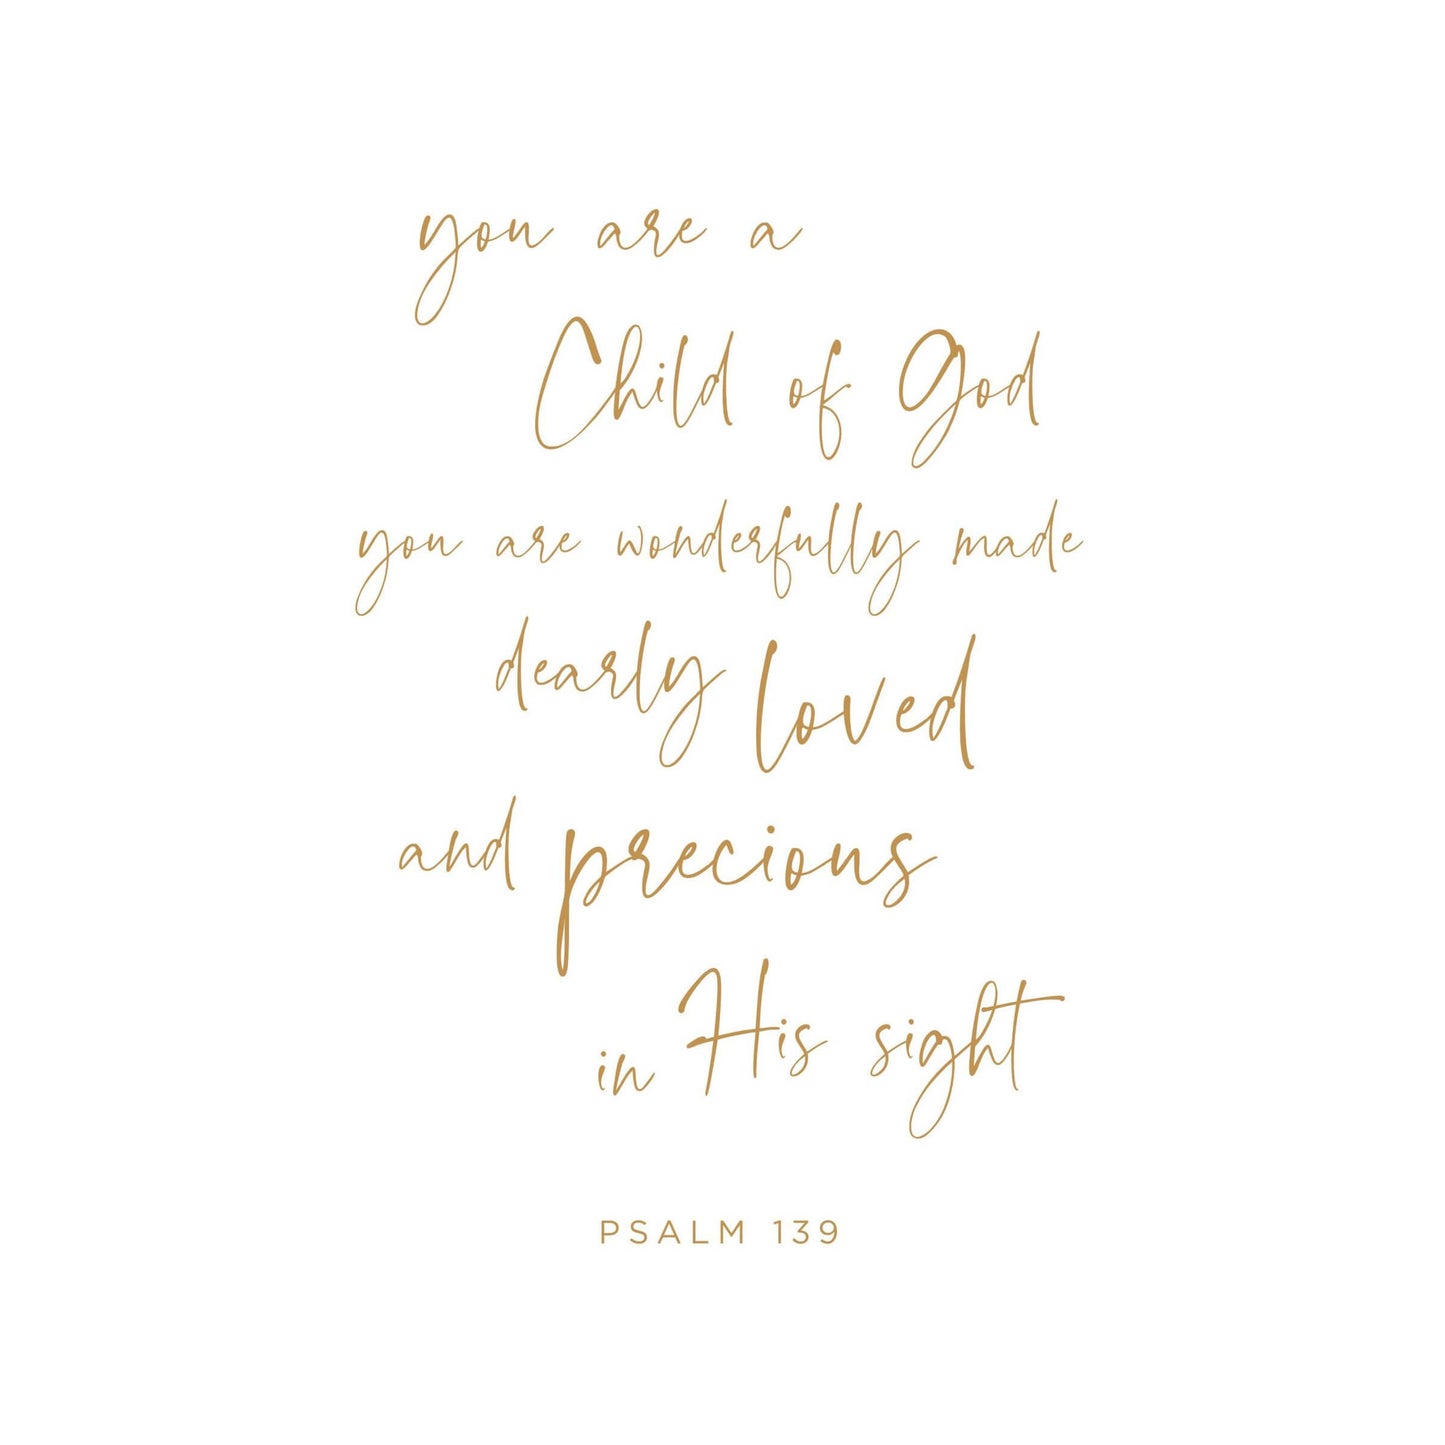 you are a
Child of God
you are wonderfully made
dearly loved
and precious
in His sight
PSALM 139